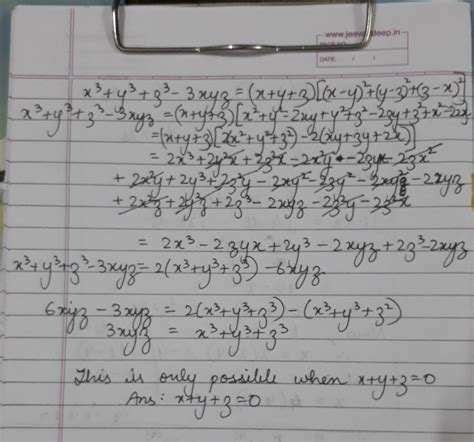 www.jeevandeep.in
PAGE NO.
DATE: / /
x³+y³+z³-3xyz = (x+y+z)[(x-y)²+(y-z)²+(z-x)²]
x³+y³+z³-3xyz = (x+y+z)[x²+y²-2xy+y²+z²-2zy+z²+x²-2zx]
= (x+y+z)[2(x²+y²+z²)-2(xy+zy+zx)]
= 2x³+2y²x+2z²x-2x²y-2zyx-2zx²
+ 2x²y+2y³+2z²y-2xy²-2zy²-2xyz
+ 2x²z+2y²z+2z³-2xyz-2z²y-2z²x
= 2x³-2zyx+2y³-2xyz+2z³-2xyz
x³+y³+z³-3xyz = 2(x³+y³+z³)-6xyz
6xyz-3xyz = 2(x³+y³+z³)-(x³+y³+z³)
3xyz = x³+y³+z³
This is only possible when x+y+z=0
Ans: x+y+z=0